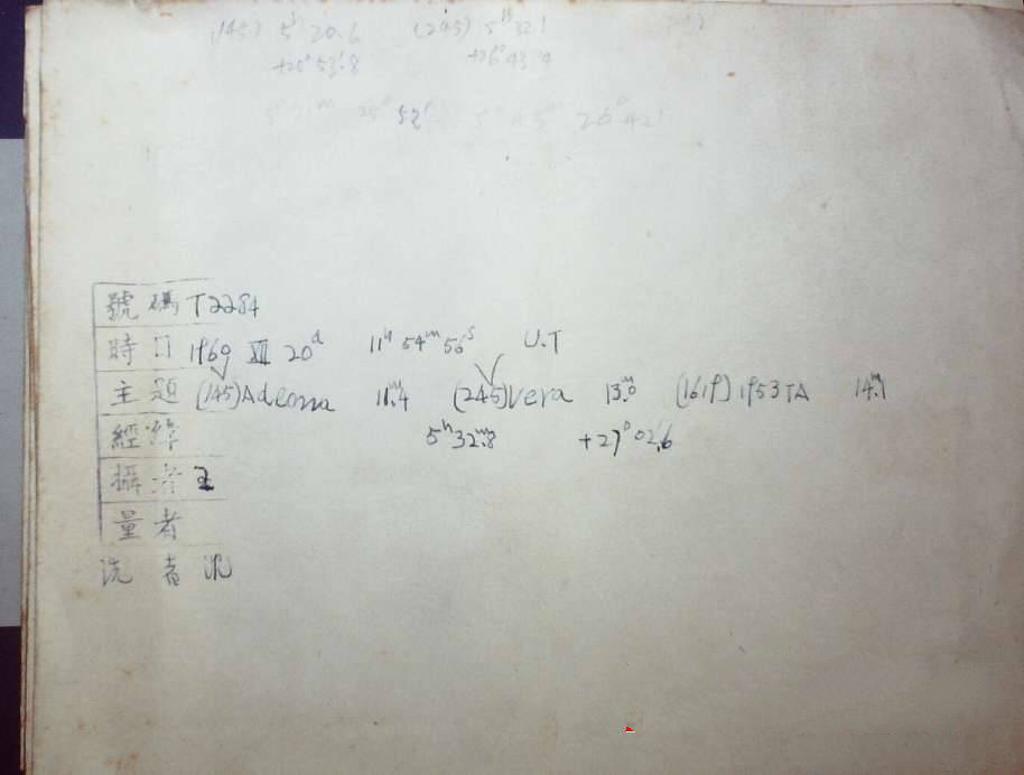 (145) 5ʰ 20.6 (245) 5ʰ 32.1
+25° 53'.8 +26° 43'.4
25° 52' 26° 42'
號碼 T2284
時日 1960 XII 20ᵈ 11ʰ 54ᵐ 56ˢ U.T
主題 (145) Adeona 11ᵐ.4 (245) Vera 13ᵐ.0 (1619) 1953TA 14ᵐ.1
經緯 5ʰ 32ᵐ.8 +27° 02'.6
攝者 王
量者
洗者 沢